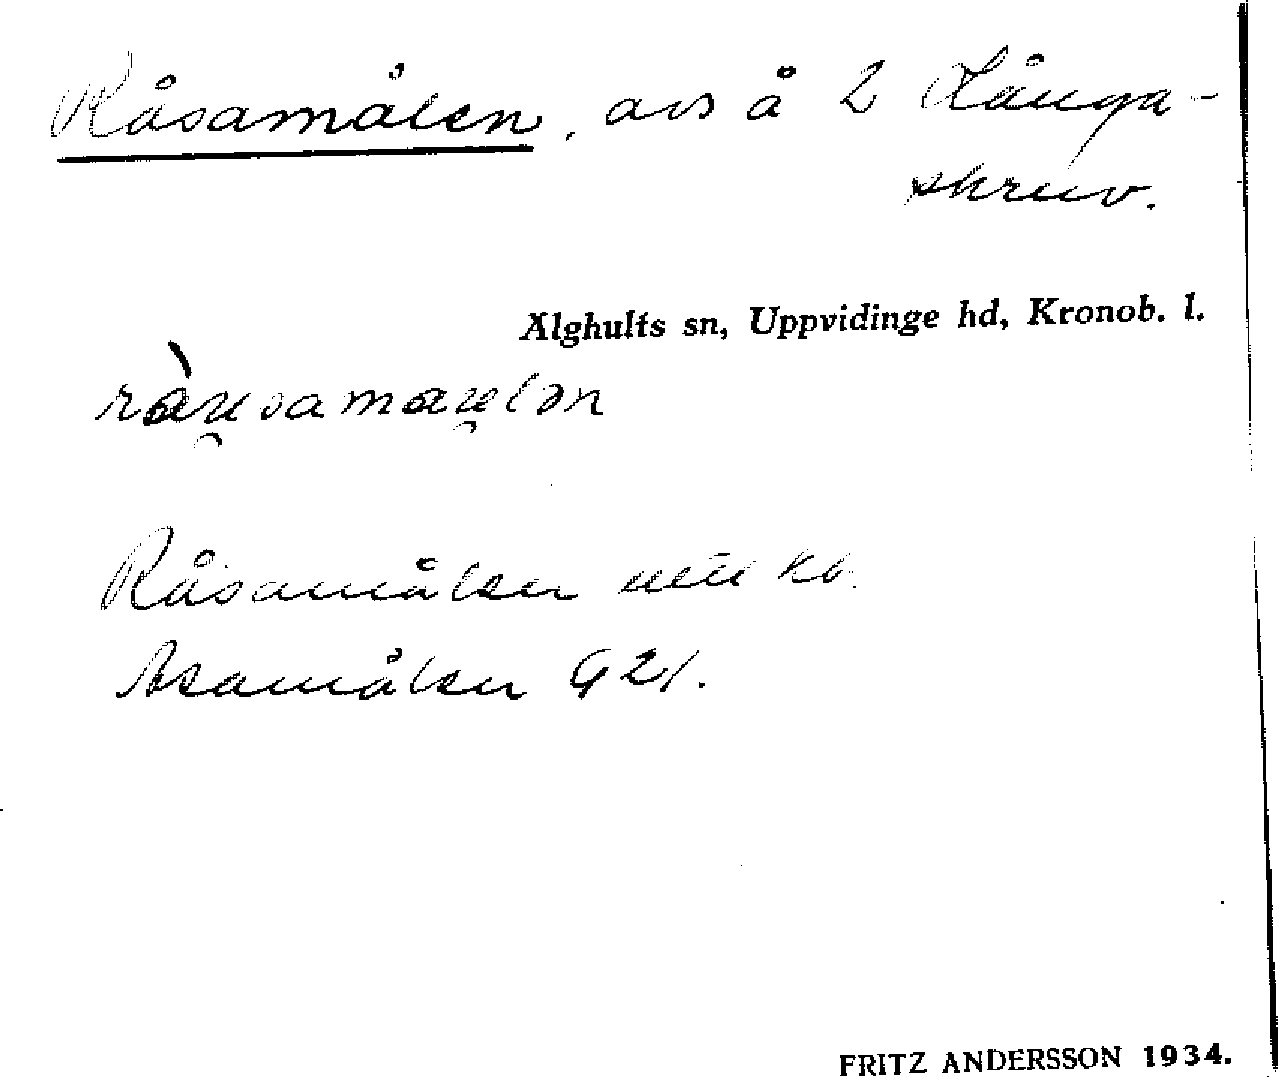 Råsamålen, avs å 2 Långa-
skruv.
Älghults sn, Uppvidinge hd, Kronob. l.
ràu̯samau̯lən
Råsamålen kb.
Asamålen G21.
FRITZ ANDERSSON 1934.